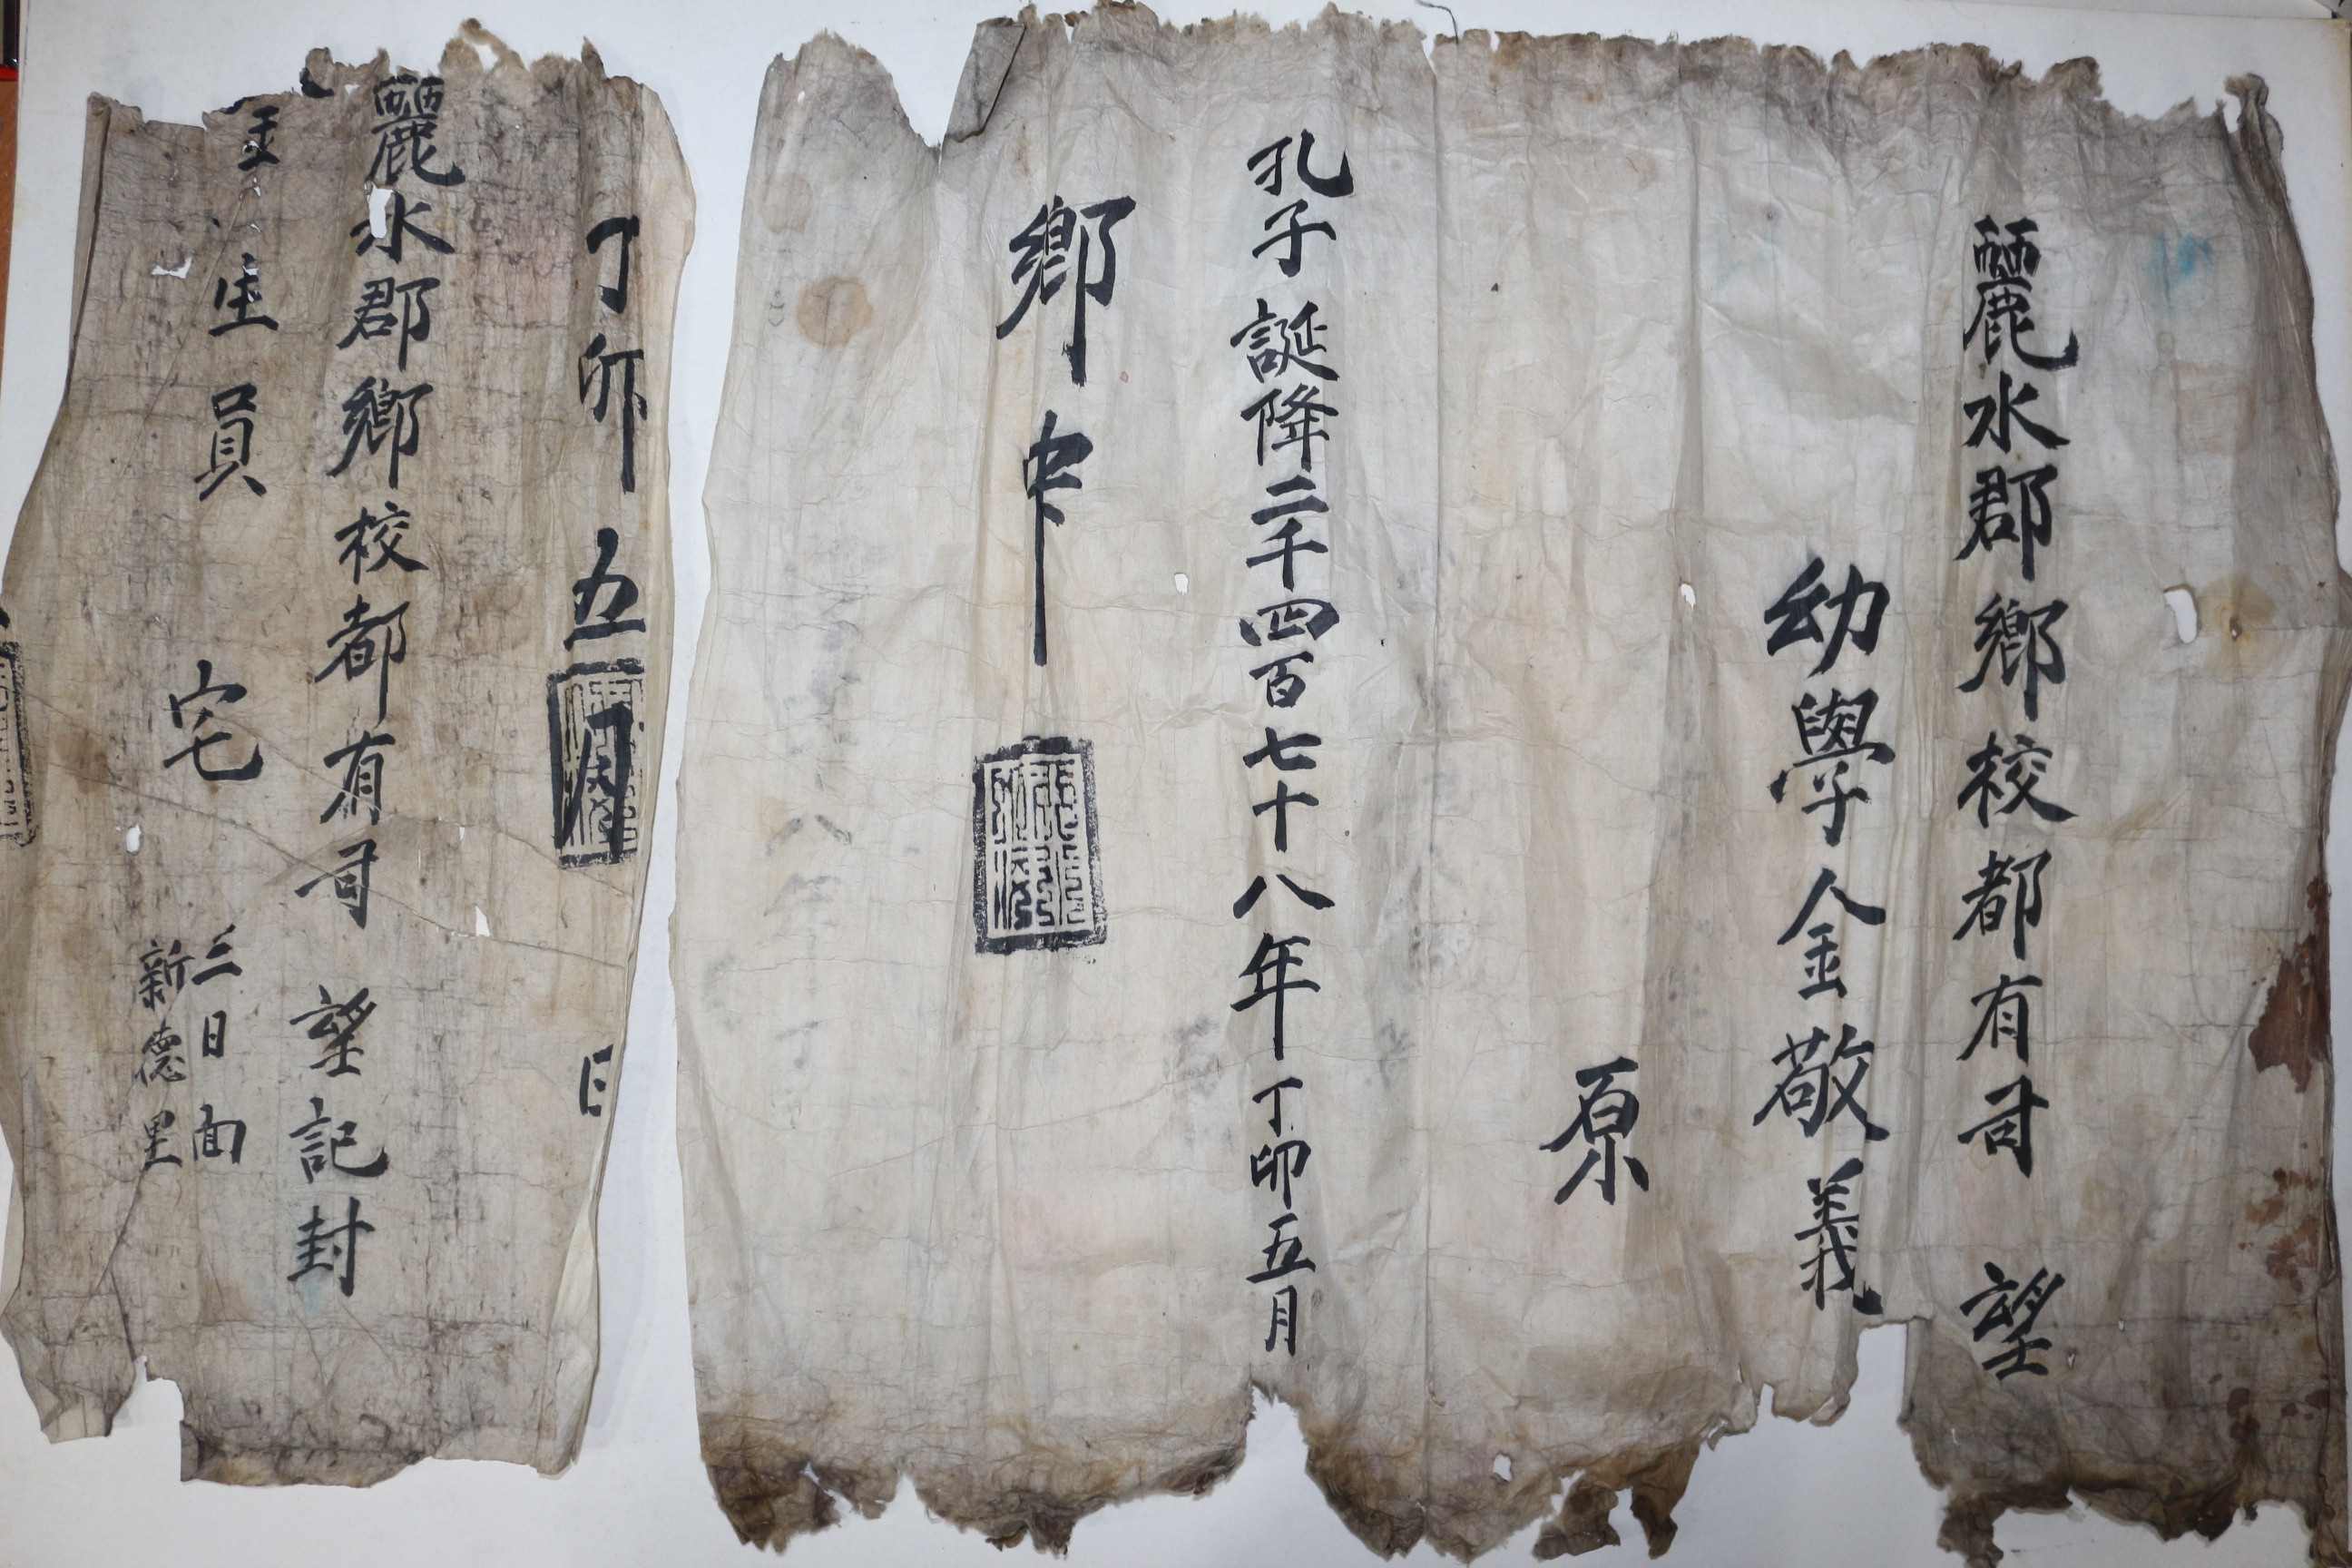 麗水郡鄕校都有司 望
幼學金敬義
原
孔子誕降二千四百七十八年丁卯五月
鄕中
丁卯 五月 日
麗水郡鄕校都有司 望記封
金 生員 宅
三日面
新德里